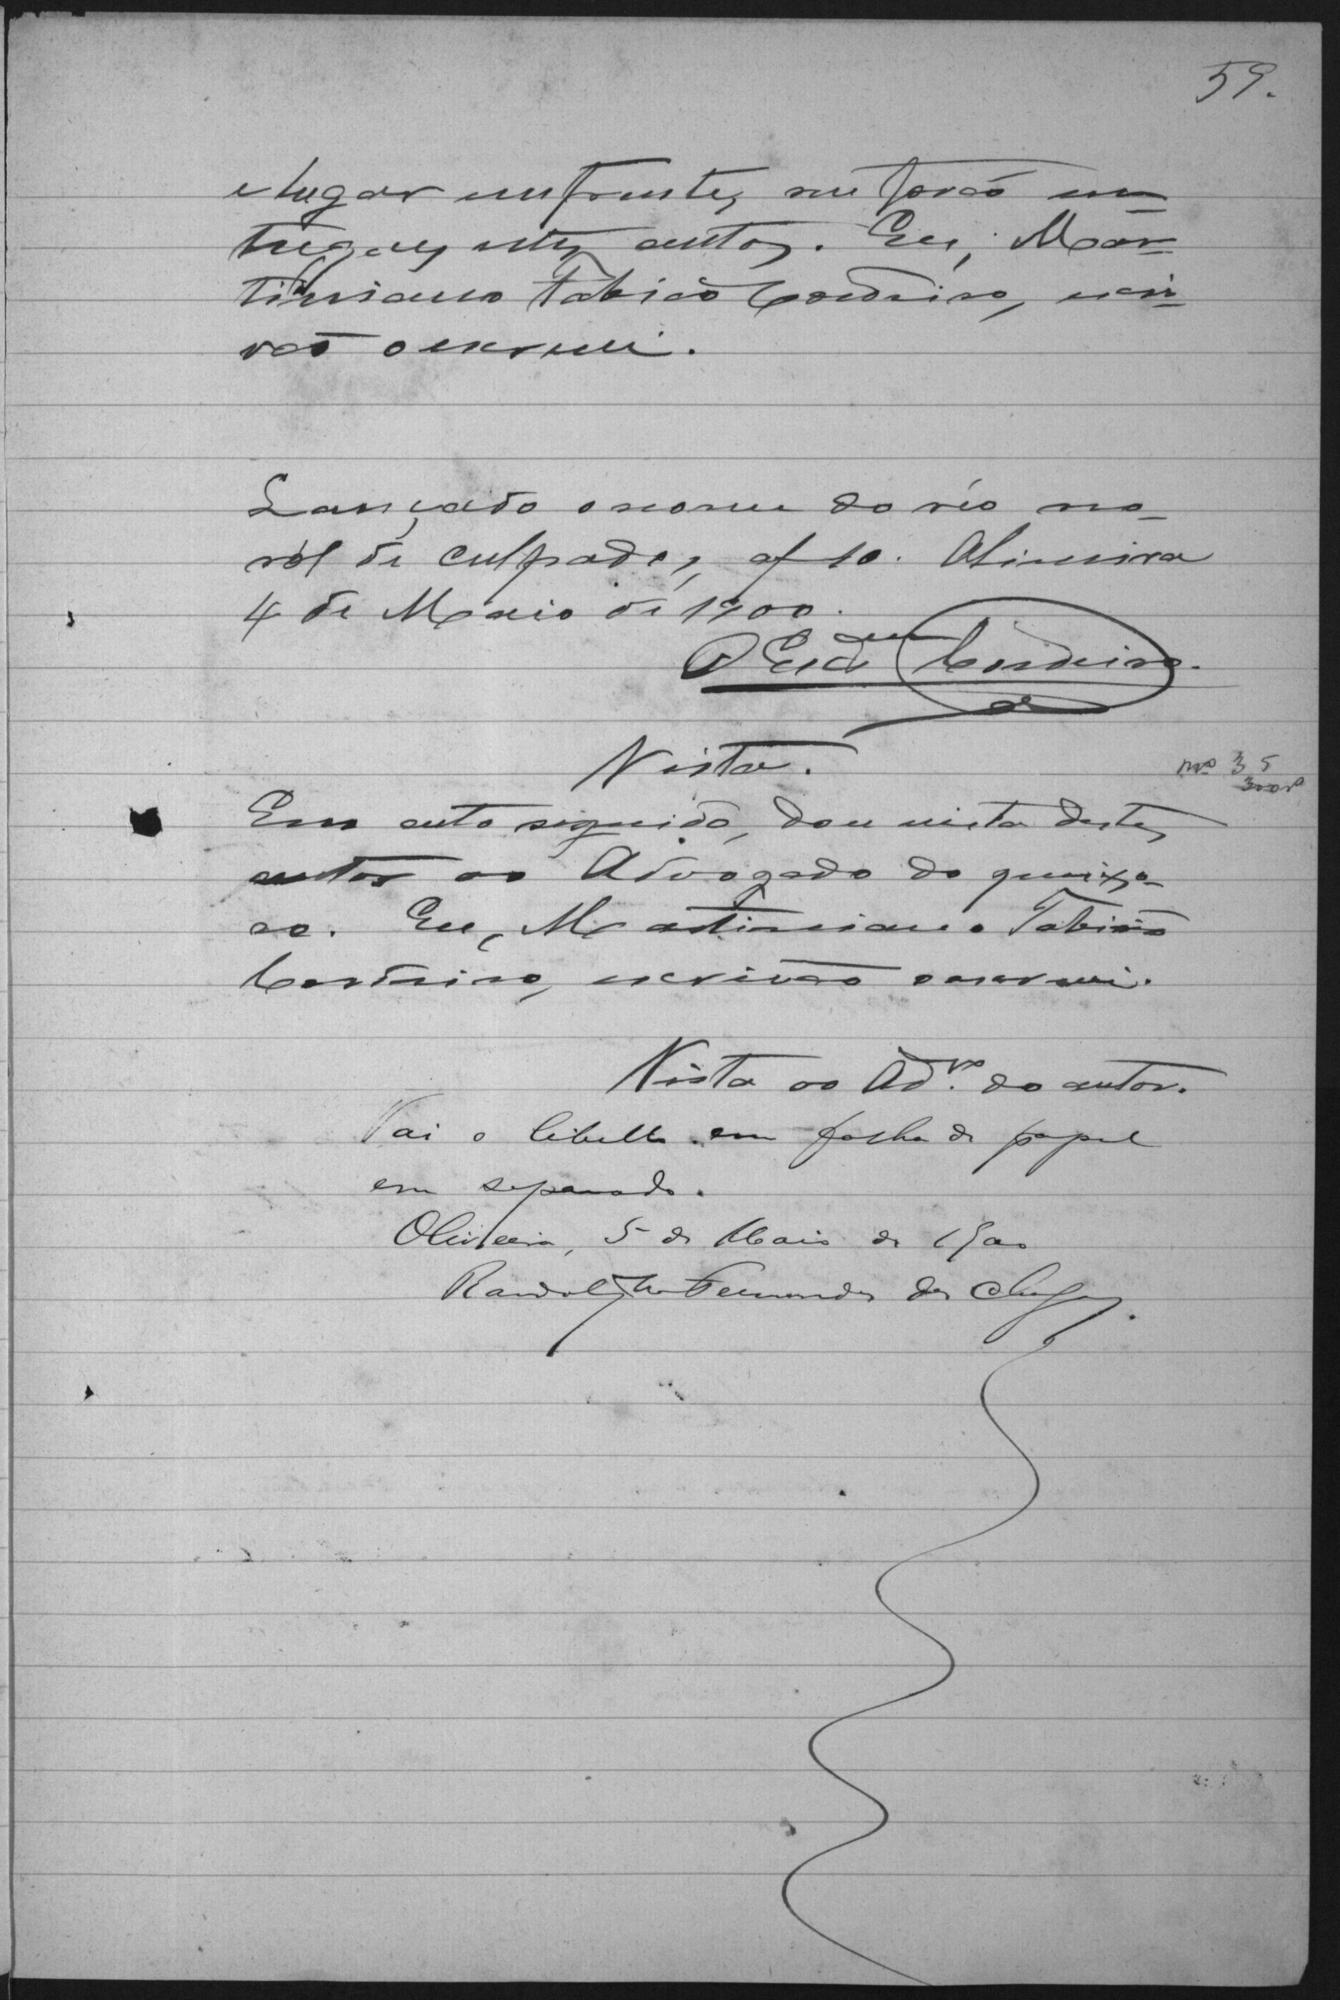 59.
e lugar em frente, me forão en-
tregues estes autos. Eu, Mar-
timiano Fabião Cordeiro, escri-
vão o escrevi.
Lançado o nome do réo no
ról de culpados, af 10. Oliveira
4 de Maio de 1900.
O Escam Cordeiro.
Vista.
nº 35
Em acto seguido, dou vista destes
autos ao Advogado do queixo-
so. Eu, Martimiano Fabião
Cordeiro, escrivão o escrevi.
Vista ao Advº do autor.
Vai o libello em folha de papel
em separado.
Oliveira, 5 de Maio de 1900
Randolpho Fernandes das Chagas.